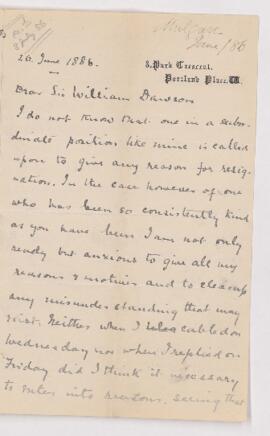 June/86
26 June 1886.
3, Park Crescent,
Portland Place, W.
Dear Sir William Dawson
I do not know that one in a subor-
dinate position like mine is called
upon to give any reason for resig-
nation. In the case however of one
who has been so consistently kind
as you have been I am not only
ready but anxious to give all my
reasons & motives and to clear up
any misunderstanding that may
exist. Neither when I cabled on
Wednesday nor when I replied on
Friday did I think it necessary
to enter into reasons, seeing that